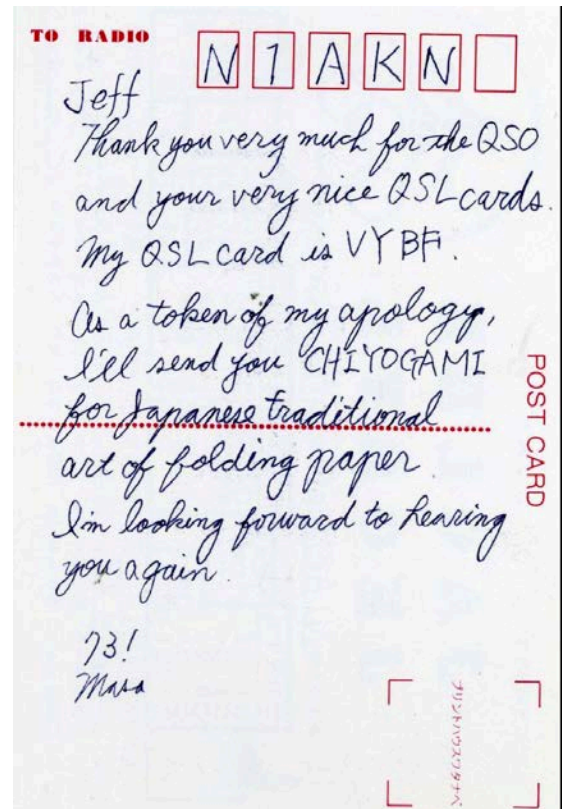 TO RADIO
N1AKN
Jeff
Thank you very much for the QSO
and your very nice QSL cards.
My QSL card is VY BF.
As a token of my apology,
I'll send you CHIYOGAMI
for Japanese traditional
art of folding paper
I'm looking forward to hearing
you again.
73!
Masa
POST CARD